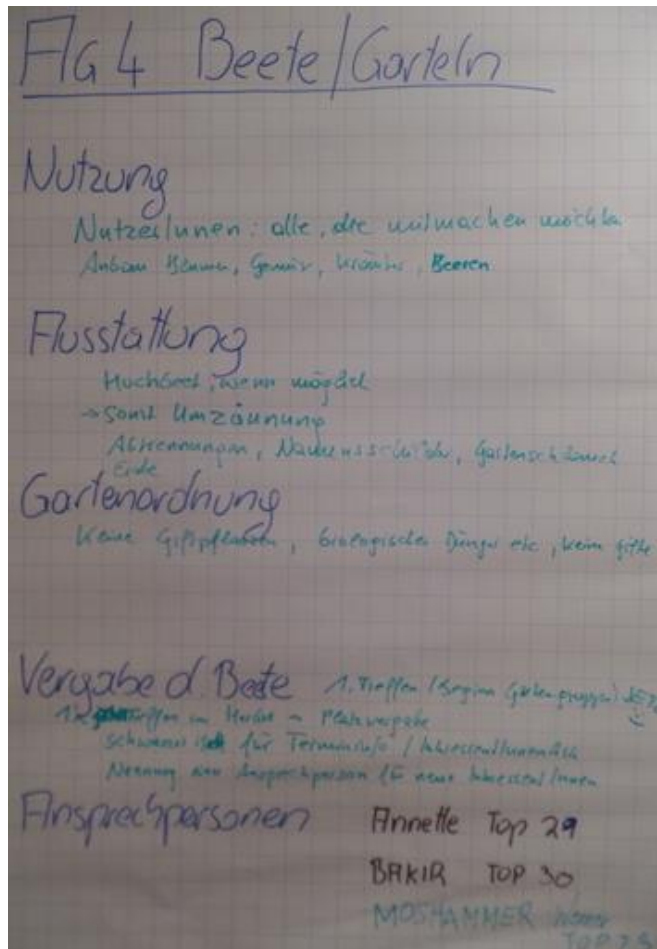 AG 4 Beete/Garteln
Nutzung
NutzerInnen: alle, die mitmachen möchten
Anbau Blumen, Gemüse, Kräuter, Beeren
Ausstattung
Hochbeet, wenn möglich
→ sonst Umzäunung
Abtrennungen, Namensschilder, Gartenschlauch
Erde
Gartenordnung
Keine Giftpflanzen, biologischer Dünger etc, kein Gift
Vergabe d. Beete 1. Treffen (Beginn Gartengruppe)
im Herbst → Platzvergabe
für Termininfo / InteressentInnen
Nennung von Ansprechperson für neue InteressentInnen
Ansprechpersonen Annette Top 29
BAKIR TOP 30
MOSHAMMER